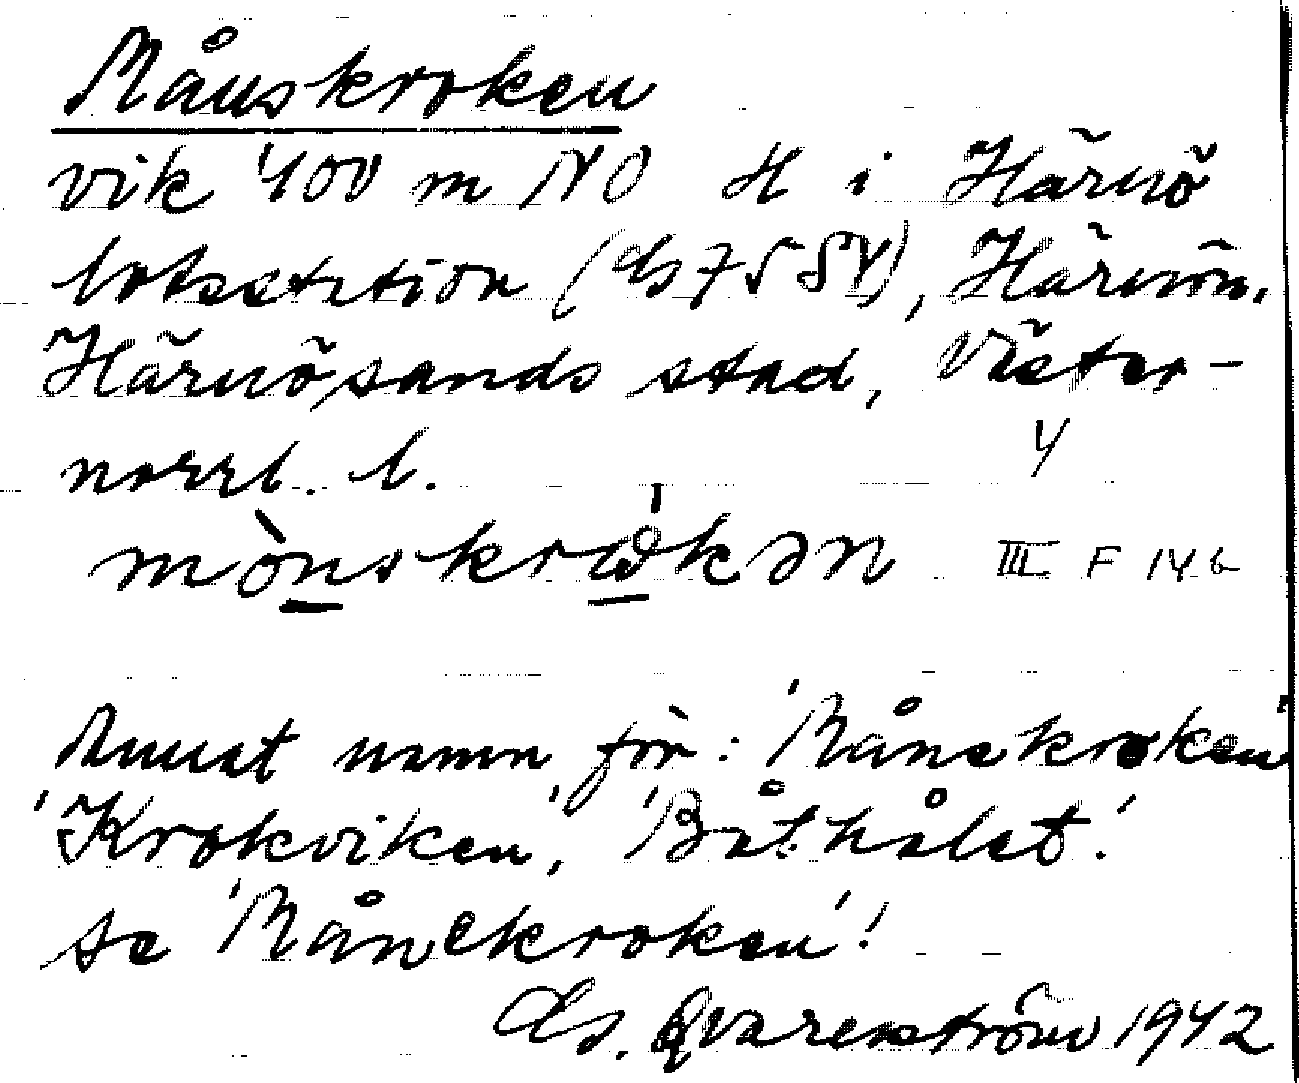 Månskroken
vik 400 m NO H i Härnö
lotsstation (Es 75 SV), Härnön,
Härnösands stad, Väster-
norrl. l.
Y
mònskrω̊kən III F 14 b
Annat namn för: 'Månekroken'
'Krokviken', 'Båthålet'.
se 'Månekroken'!
Es. Qvarenström 1942